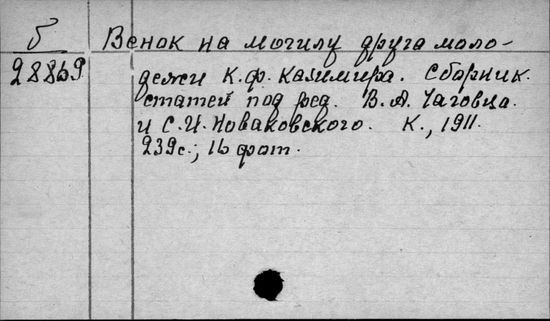 Б Венок на могилу друга моло-
28869 дежи К.Ф. Казимира. Сборник
статей под ред. В.А. Чаговца
и С.И. Новаковского. К., 1911.
239с.; 16 фот.